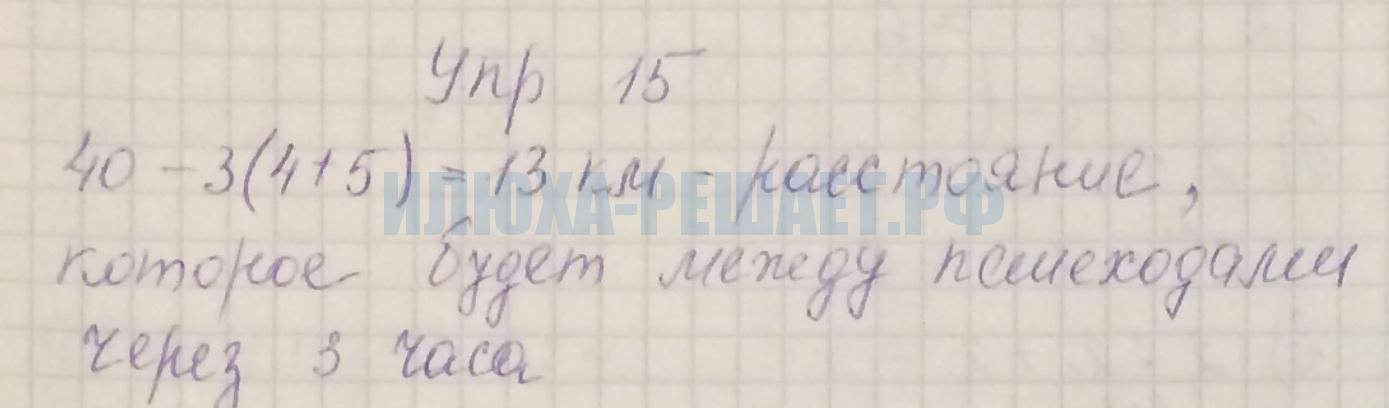 Упр 15
40 - 3(4+5) = 13 км - расстояние,
ИЛЮХА-РЕШАЕТ.РФ
которое будет между пешеходами
через 3 часа